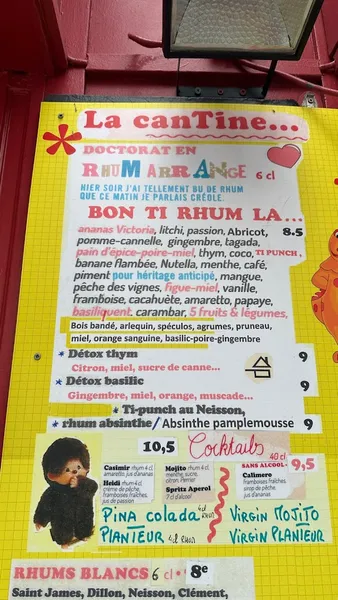 La canTine...
DOCTORAT EN
RHUM ARRANGE 6 cl
HIER SOIR J'AI TELLEMENT BU DE RHUM
QUE CE MATIN JE PARLAIS CRÉOLE.
BON TI RHUM LA...
ananas Victoria, litchi, passion, Abricot, 8.5
pomme-cannelle, gingembre, tagada,
pain d'épice-poire-miel, thym, coco, TI PUNCH,
banane flambée, Nutella, menthe, café,
piment pour héritage anticipé, mangue,
pêche des vignes, figue-miel, vanille,
framboise, cacahuète, amaretto, papaye,
basiliquent. carambar, 5 fruits & légumes,
Bois bandé, arlequin, spéculos, agrumes, pruneau,
miel, orange sanguine, basilic-poire-gingembre
* Détox thym 9
Citron, miel, sucre de canne...
* Détox basilic 9
Gingembre, miel, orange, muscade...
* Ti-punch au Neisson,
* rhum absinthe/ Absinthe pamplemousse 9
10,5 Cocktails 40 cl
SANS ALCOOL - 9,5
Casimir rhum 4 cl
amaretto, citron,
jus d'ananas
Heidi rhum 4 cl
crème de pêche,
framboises fraîches,
jus de passion
Mojito rhum 4 cl
menthe, sucre,
citron, Perrier
Spritz Aperol
7 cl d'alcool
Calimero
framboises fraîches,
sirop de pêche,
jus d'ananas
PINA colada 4cl RHUM
PLANTEUR 4cl RHUM
VIRGIN MOJITO
VIRGIN PLANTEUR
RHUMS BLANCS 6 cl 8e
Saint James, Dillon, Neisson, Clément,